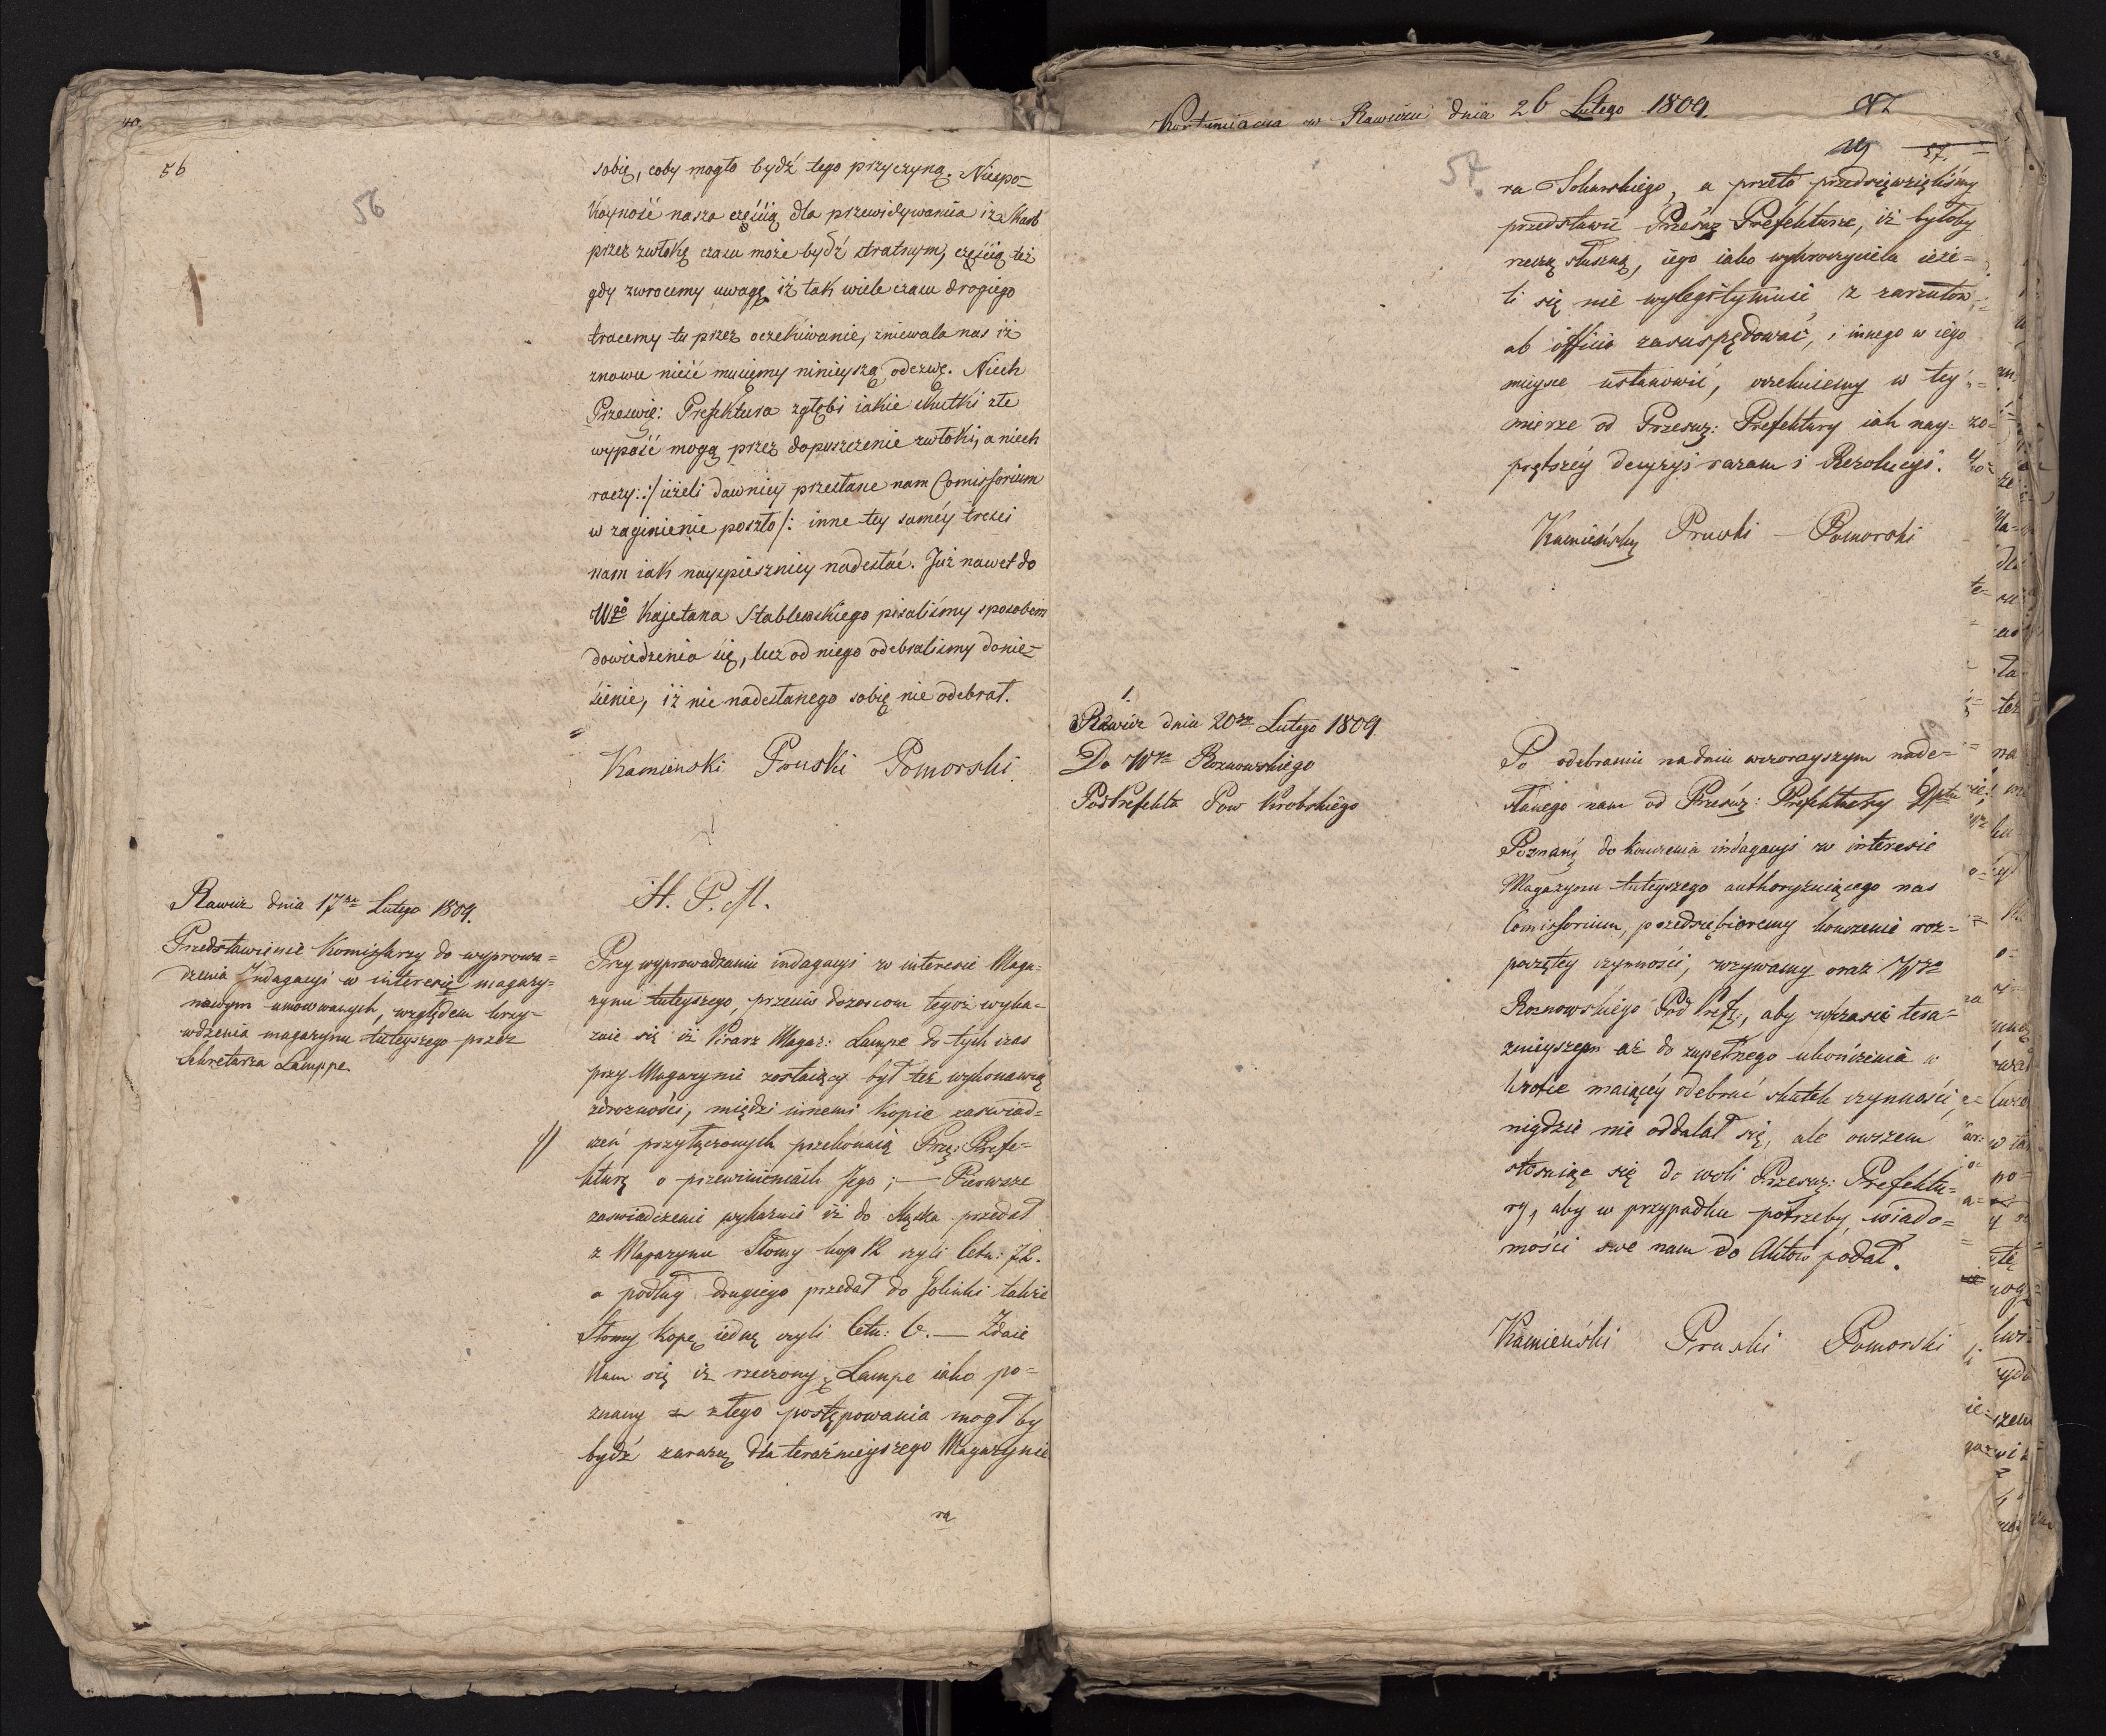 40.
56
56
sobię, coby mogło bydź tego przyczyną. Niespo-
Koyność nasza częśćią dla przewidywania iż Skarb
przez zwłokę czasu może bydź stratnym, częścią też
gdy zwrocemy uwagę iż tak wiele czasu drogiego
tracemy tu przez oczekiwanie, zniewala nas iż
znowu nieść musięmy ninieyszą odezwę. Niech
Przeswię: Prefektura zgłębi iakie skutki złe
wypaść mogą przez dopuszczenie zwłoki, a niech
raczy :/ ieżeli dawniey przesłane nam Comissorium
w zaginienie poszło /: inne tey saméy tresci
nam iak nayspieszniey nadesłać. Już nawet do
Wgo Kajetana Stablewskiego pisaliśmy sposobem
dowiedzenia się, lecz od niego odebralismy donie-
sienie, iż nic nadesłanego sobię nie odebrał.
Kamienski Pruski Pomorski
Rawicz dnia 17go Lutego 1809.
Przedstawienie Komissarzy do wyprowa=
dzenia Indagacyi w interesię magazy-
nowym umocowanych, względem krzy-
wdzenia magazynu tuteyszego przez
Sekretarza Lamppe.
H. P. M.
Przy wyprowadzaniu indagacyi w interesie Maga-
zynu tuteyszego, przeciw dozorcom tegoż wyka-
zuie się iż Pisarz Magaz: Lampe do tych czas
przy Magazynie zostaiący był też wykonawcą
zdrożności, między innemi Kopie zaswiad=
czeń przyłączonych przekonaią Prz: Prefe-
kturę o przewinieniach Jego; — Pierwsze
zaswiadczenie wykazuie iż do Sląska przedał
z Magazynu Słomy kop 12 czyli Cetn: 72.
a podług drugiego przedał do Golinki także
Słomy kopę iednę czyli Cetn: 6. — Zdaie
Nam się iż rzeczony Lampe iako po-
znany z złego postępowania mogł by
bydź zarazą dla teraźnieyszego Magazynie
ra
Kontynuacya w Rawiczu dnia 26 Lutego 1809.
57.
57.
ra Sokurskiego, a przeto przedsięwzięliśmy
przedstawić Prześwz Prefekturze, iż byłoby
rzeczą słuszną, iego iako wykroczyciela ieże=
li się nie wylegitymuie z zarzutow
ab officio zasuspędować, i innego w iego
mieysce ustanowić, oczekuiemy w tey
mierze od Przeswz: Prefektury iak nay-
prętszéy decyzyi razem i Rezolucyi.
Kamieński Pruski — Pomorski
1.
Rawicz dnia 20go Lutego 1809.
Do Wgo Roznowskiego
PodPrefekta Pow Krobskiego
Po odebraniu na dniu wczorayszym nade-
słanego nam od Prześwz: Prefektury Dptu
Poznań do kończenia indagacyi w interesie
Magazynu tuteyszego authoryzuiącego nas
Comissorium, przedsiębieremy kończenie roz-
poczętey czynności, wzywamy oraz Wgo
Roznowskiego Pod Pref:, aby wczasie tera-
znieyszem aż do zupełnego ukończenia w
krotce maiącéy odebrać skutek czynności,
nigdzie nie oddalał się, ale owszem
stosuiąc się do woli Przeswz: Prefektu-
ry, aby w przypadku potrzeby, wiado=
mości swe nam do Aktow podał.
Kamieński Pruski Pomorski